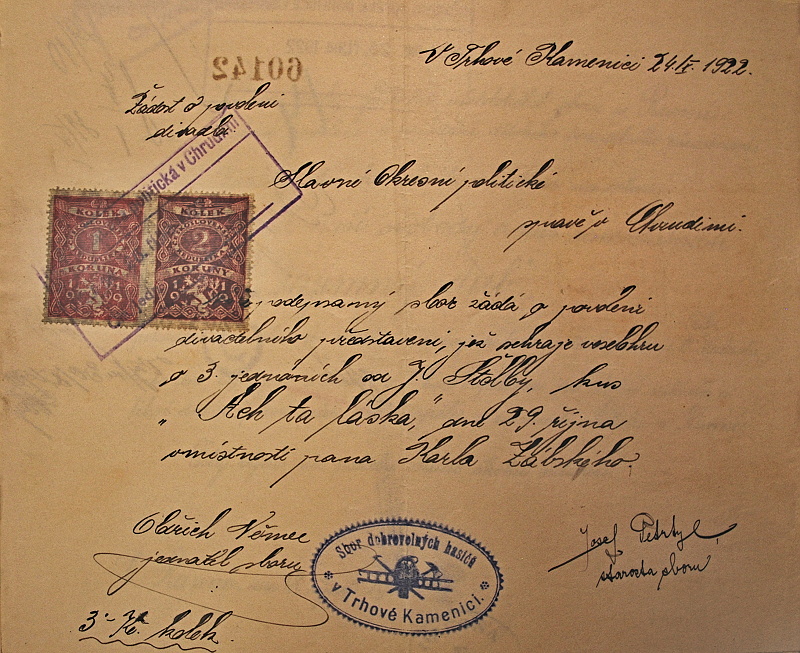 V Trhové Kamenici 24./X. 1922.
60142
Žádost o povolení
divadla
Slavné Okresní politické
správě v Chrudimi.
politická v Chrudimi
KOLEK
1
KORUNA
1919
KOLEK
2
KORUNY
1919
podepsaný sbor žádá o povolení
divadelního představení, jež sehraje veselohru
o 3. jednáních od J. Štolby, kus
„Ach ta láska," dne 29. října
v místnosti pana Karla Žábského.
Oldřich Němec
jednatel sboru
Sbor dobrovolných hasičů
v Trhové Kamenici.
Josef Petrtyl
starosta sboru
3.- Kč. kolek.